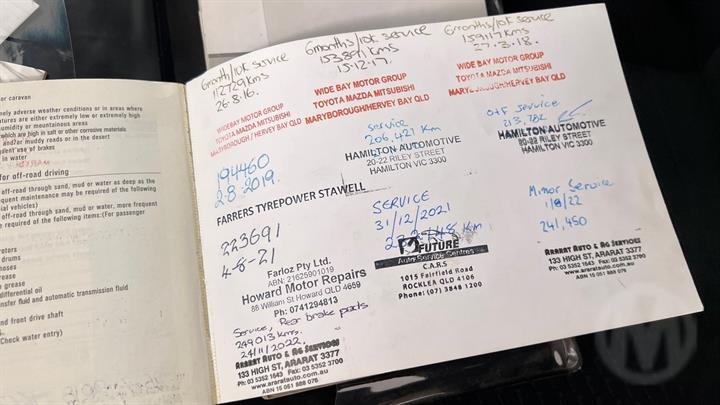 or caravan
nely adverse weather conditions or in areas where
atures are either extremely low or extremely high
humidity or mountainous areas
which are high in salt or other corrosive materials
and/or muddy roads or in the desert
quent use of brakes
in water
for off-road driving
off-road through sand, mud or water as deep as the
quent maintenance may be required of the following
cial vehicles)
off-road through sand, mud or water, more frequent
be required of the following items:(For passenger
drums
hoses
grease
differential oil
nsfer fluid and automatic transmission fluid
and front drive shaft
(Check water entry)
6month/10K service
112729kms
26.8.16.
WIDE BAY MOTOR GROUP
TOYOTA MAZDA MITSUBISHI
MARYBOROUGH / HERVEY BAY QLD
6months/10K service
153891kms
15.12.17.
WIDE BAY MOTOR GROUP
TOYOTA MAZDA MITSUBISHI
MARYBOROUGH/HERVEY BAY QLD
6months/10K service
159117kms
27.3.18.
WIDE BAY MOTOR GROUP
TOYOTA MAZDA MITSUBISHI
MARYBOROUGH/HERVEY BAY QLD
194460
2-8-2019.
FARRERS TYREPOWER STAWELL
service
206,427 Km
HAMILTON AUTOMOTIVE
20-22 RILEY STREET
HAMILTON VIC 3300
service
213,782
HAMILTON AUTOMOTIVE
20-22 RILEY STREET
HAMILTON VIC 3300
223691
4-8-21
Farloz Pty Ltd.
ABN: 21625901019
Howard Motor Repairs
88 William St Howard QLD 4659
Ph: 0741294813
SERVICE
31/12/2021
FUTURE
Auto Service Centres
C.A.R.S
1015 Fairfield Road
ROCKLEA QLD 4106
Phone: (07) 3848 1200
Minor Service
1/8/22
241,450
ARARAT AUTO & AG SERVICES
133 HIGH ST, ARARAT 3377
Ph: 03 5352 1643 Fax: 03 5352 3700
www.araratauto.com.au
ABN 15 051 888 076
Service, Rear brake pads
249013 kms.
24/11/2022.
ARARAT AUTO & AG SERVICES
133 HIGH ST, ARARAT 3377
Ph: 03 5352 1643 Fax: 03 5352 3700
www.araratauto.com.au
ABN 15 051 888 076